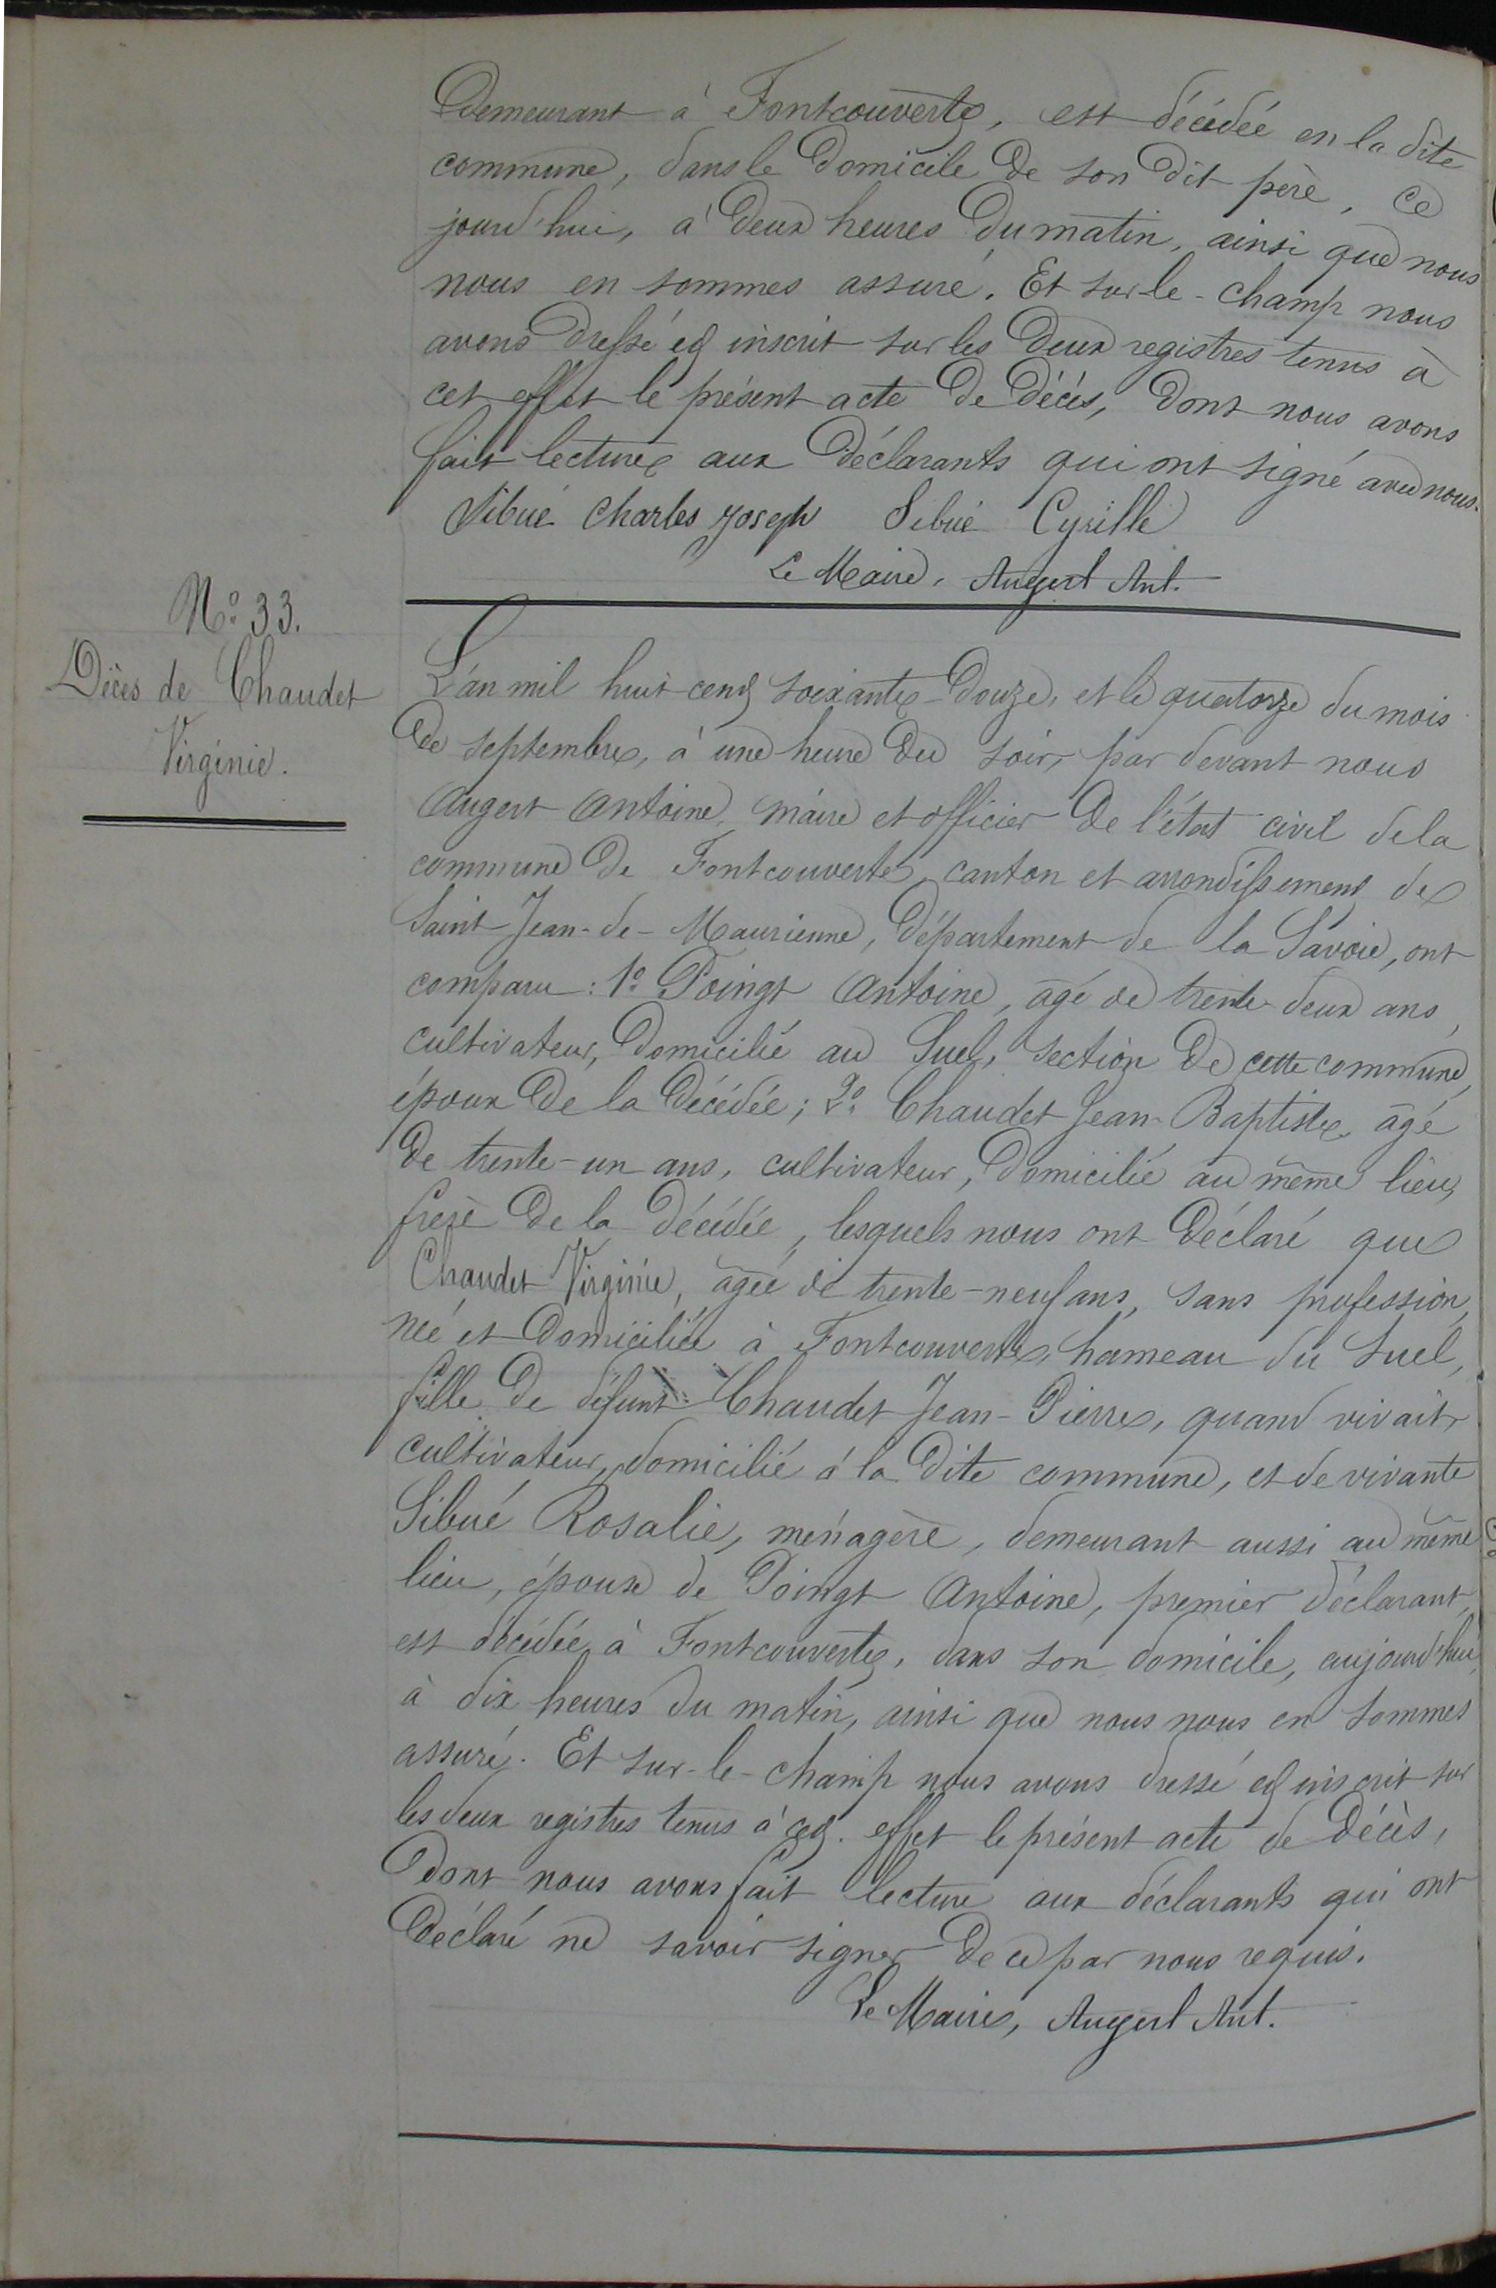 Demeurant à Fontcouverte, est décédée en la dite
commune, dans le Domicile de son dit père, ce
jourd'hui, à Deux heures Du matin, ainsi que nous
nous en sommes assuré. Et sur-le-champ nous
avons Dressé et inscrit sur les Deux registres tenus à
cet effet le présent acte De Décès, Dont nous avons
fait lecture aux Déclarants qui ont signé avec nous.
Sibué Charles Joseph Sibué Cyrille
Le Maire, Augert Ant.
N° 33.
Décès de Chaudet
Virginie.
L'an mil huit cent soixante-Douze, et le quatorze du mois
De septembre, à une heure Du soir, par devant nous
Augert Antoine, maire et officier De l'état civil de la
commune De Fontcouverte, canton et arrondissement de
Saint Jean-de-Maurienne, Département de la Savoie, ont
comparu: 1° Poingt Antoine, âgé de trente-deux ans,
cultivateur, Domicilié au Suel, section De cette commune,
époux De la Décédée; 2° Chaudet Jean-Baptiste, âgé
De trente-un ans, cultivateur, Domicilié au même lieu,
frère De la Décédée, lesquels nous ont Déclaré que
Chaudet Virginie, âgée de trente-neuf ans, sans profession,
née et Domiciliée à Fontcouverte, hameau du Suel,
fille De défunt Chaudet Jean-Pierre, quand vivait,
cultivateur, domicilié à la Dite commune, et de vivante
Sibué Rosalie, ménagère, demeurant aussi au même
lieu, épouse de Poingt Antoine, premier déclarant,
est décédée à Fontcouverte, dans son domicile, aujourd'hui,
à dix heures du matin, ainsi que nous nous en sommes
assuré. Et sur-le-champ nous avons dressé et inscrit sur
les deux registres tenus à cet effet le présent acte de Décès,
Dont nous avons fait lecture aux déclarants qui ont
Déclaré ne savoir signer De ce par nous requis.
Le Maire, Augert Ant.